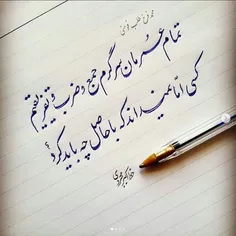 تمام عمرمان سرگرم جمع و ضرب و تفریقیم
کسی اما نمیداند که با حاصل چه باید کرد؟